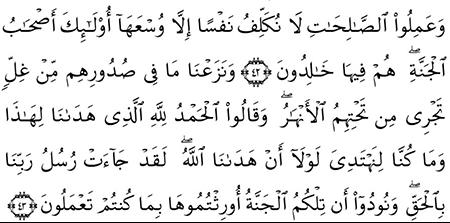 وَعَمِلُوا۟ ٱلصَّـٰلِحَـٰتِ لَا نُكَلِّفُ نَفْسًا إِلَّا وُسْعَهَآ أُو۟لَـٰٓئِكَ أَصْحَـٰبُ
ٱلْجَنَّةِ ۖ هُمْ فِيهَا خَـٰلِدُونَ ﴿٤٢﴾ وَنَزَعْنَا مَا فِى صُدُورِهِم مِّنْ غِلٍّۢ
تَجْرِى مِن تَحْتِهِمُ ٱلْأَنْهَـٰرُ ۖ وَقَالُوا۟ ٱلْحَمْدُ لِلَّهِ ٱلَّذِى هَدَىٰنَا لِهَـٰذَا
وَمَا كُنَّا لِنَهْتَدِىَ لَوْلَآ أَنْ هَدَىٰنَا ٱللَّهُ ۖ لَقَدْ جَآءَتْ رُسُلُ رَبِّنَا
بِٱلْحَقِّ ۖ وَنُودُوٓا۟ أَن تِلْكُمُ ٱلْجَنَّةُ أُورِثْتُمُوهَا بِمَا كُنتُمْ تَعْمَلُونَ ﴿٤٣﴾